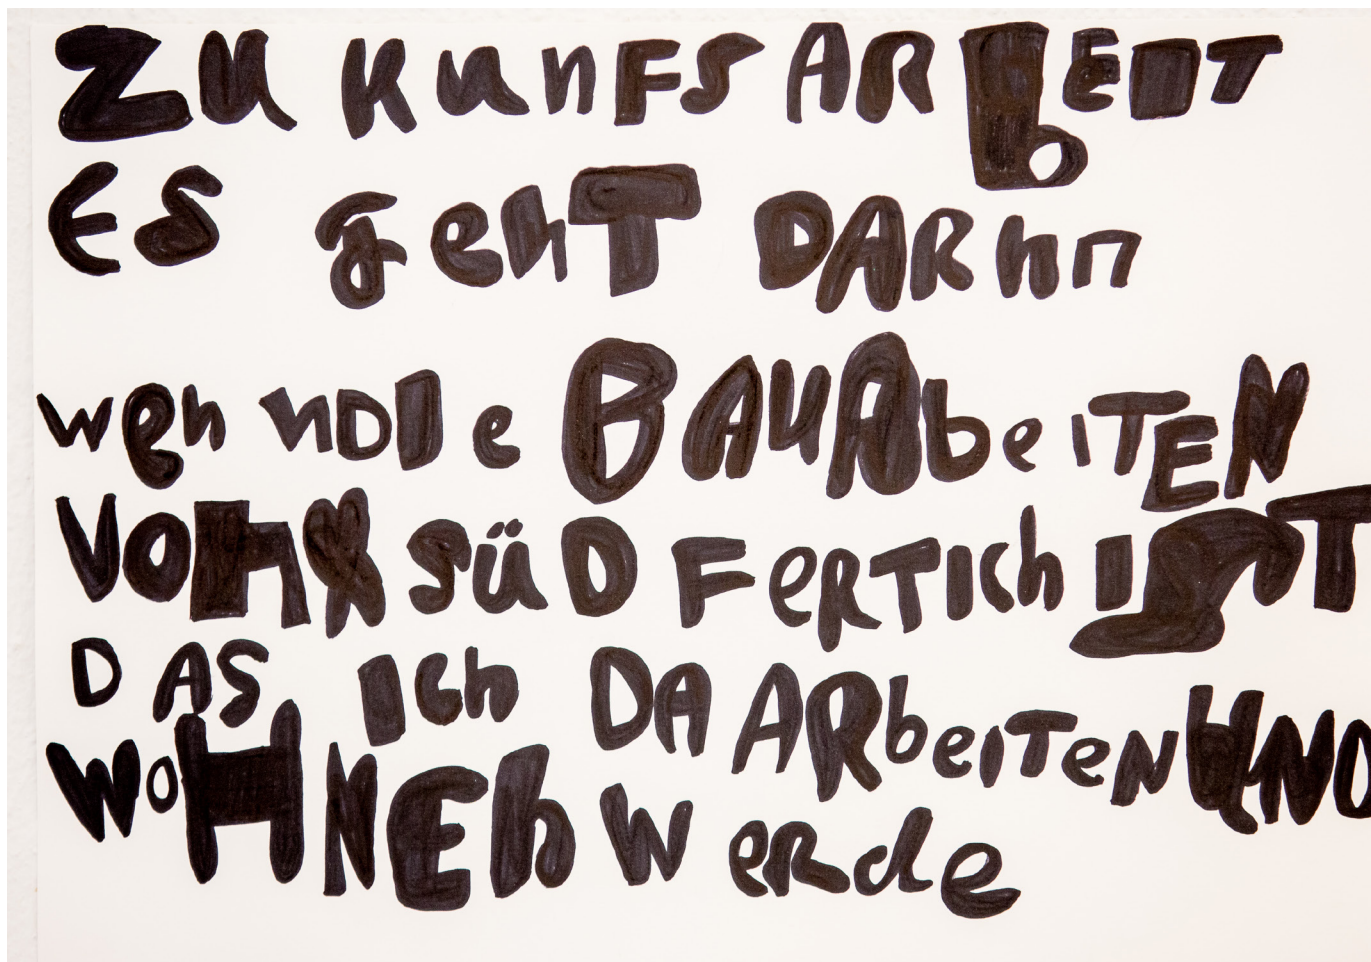 ZU KUnFS ARbEIT
ES gehT DARhn
wen nDIe BAUAbeiTEN
VOHR SüD FeRTICh IST
DAS ICh DA ARbeITeN UND
WoHNEn WeRde